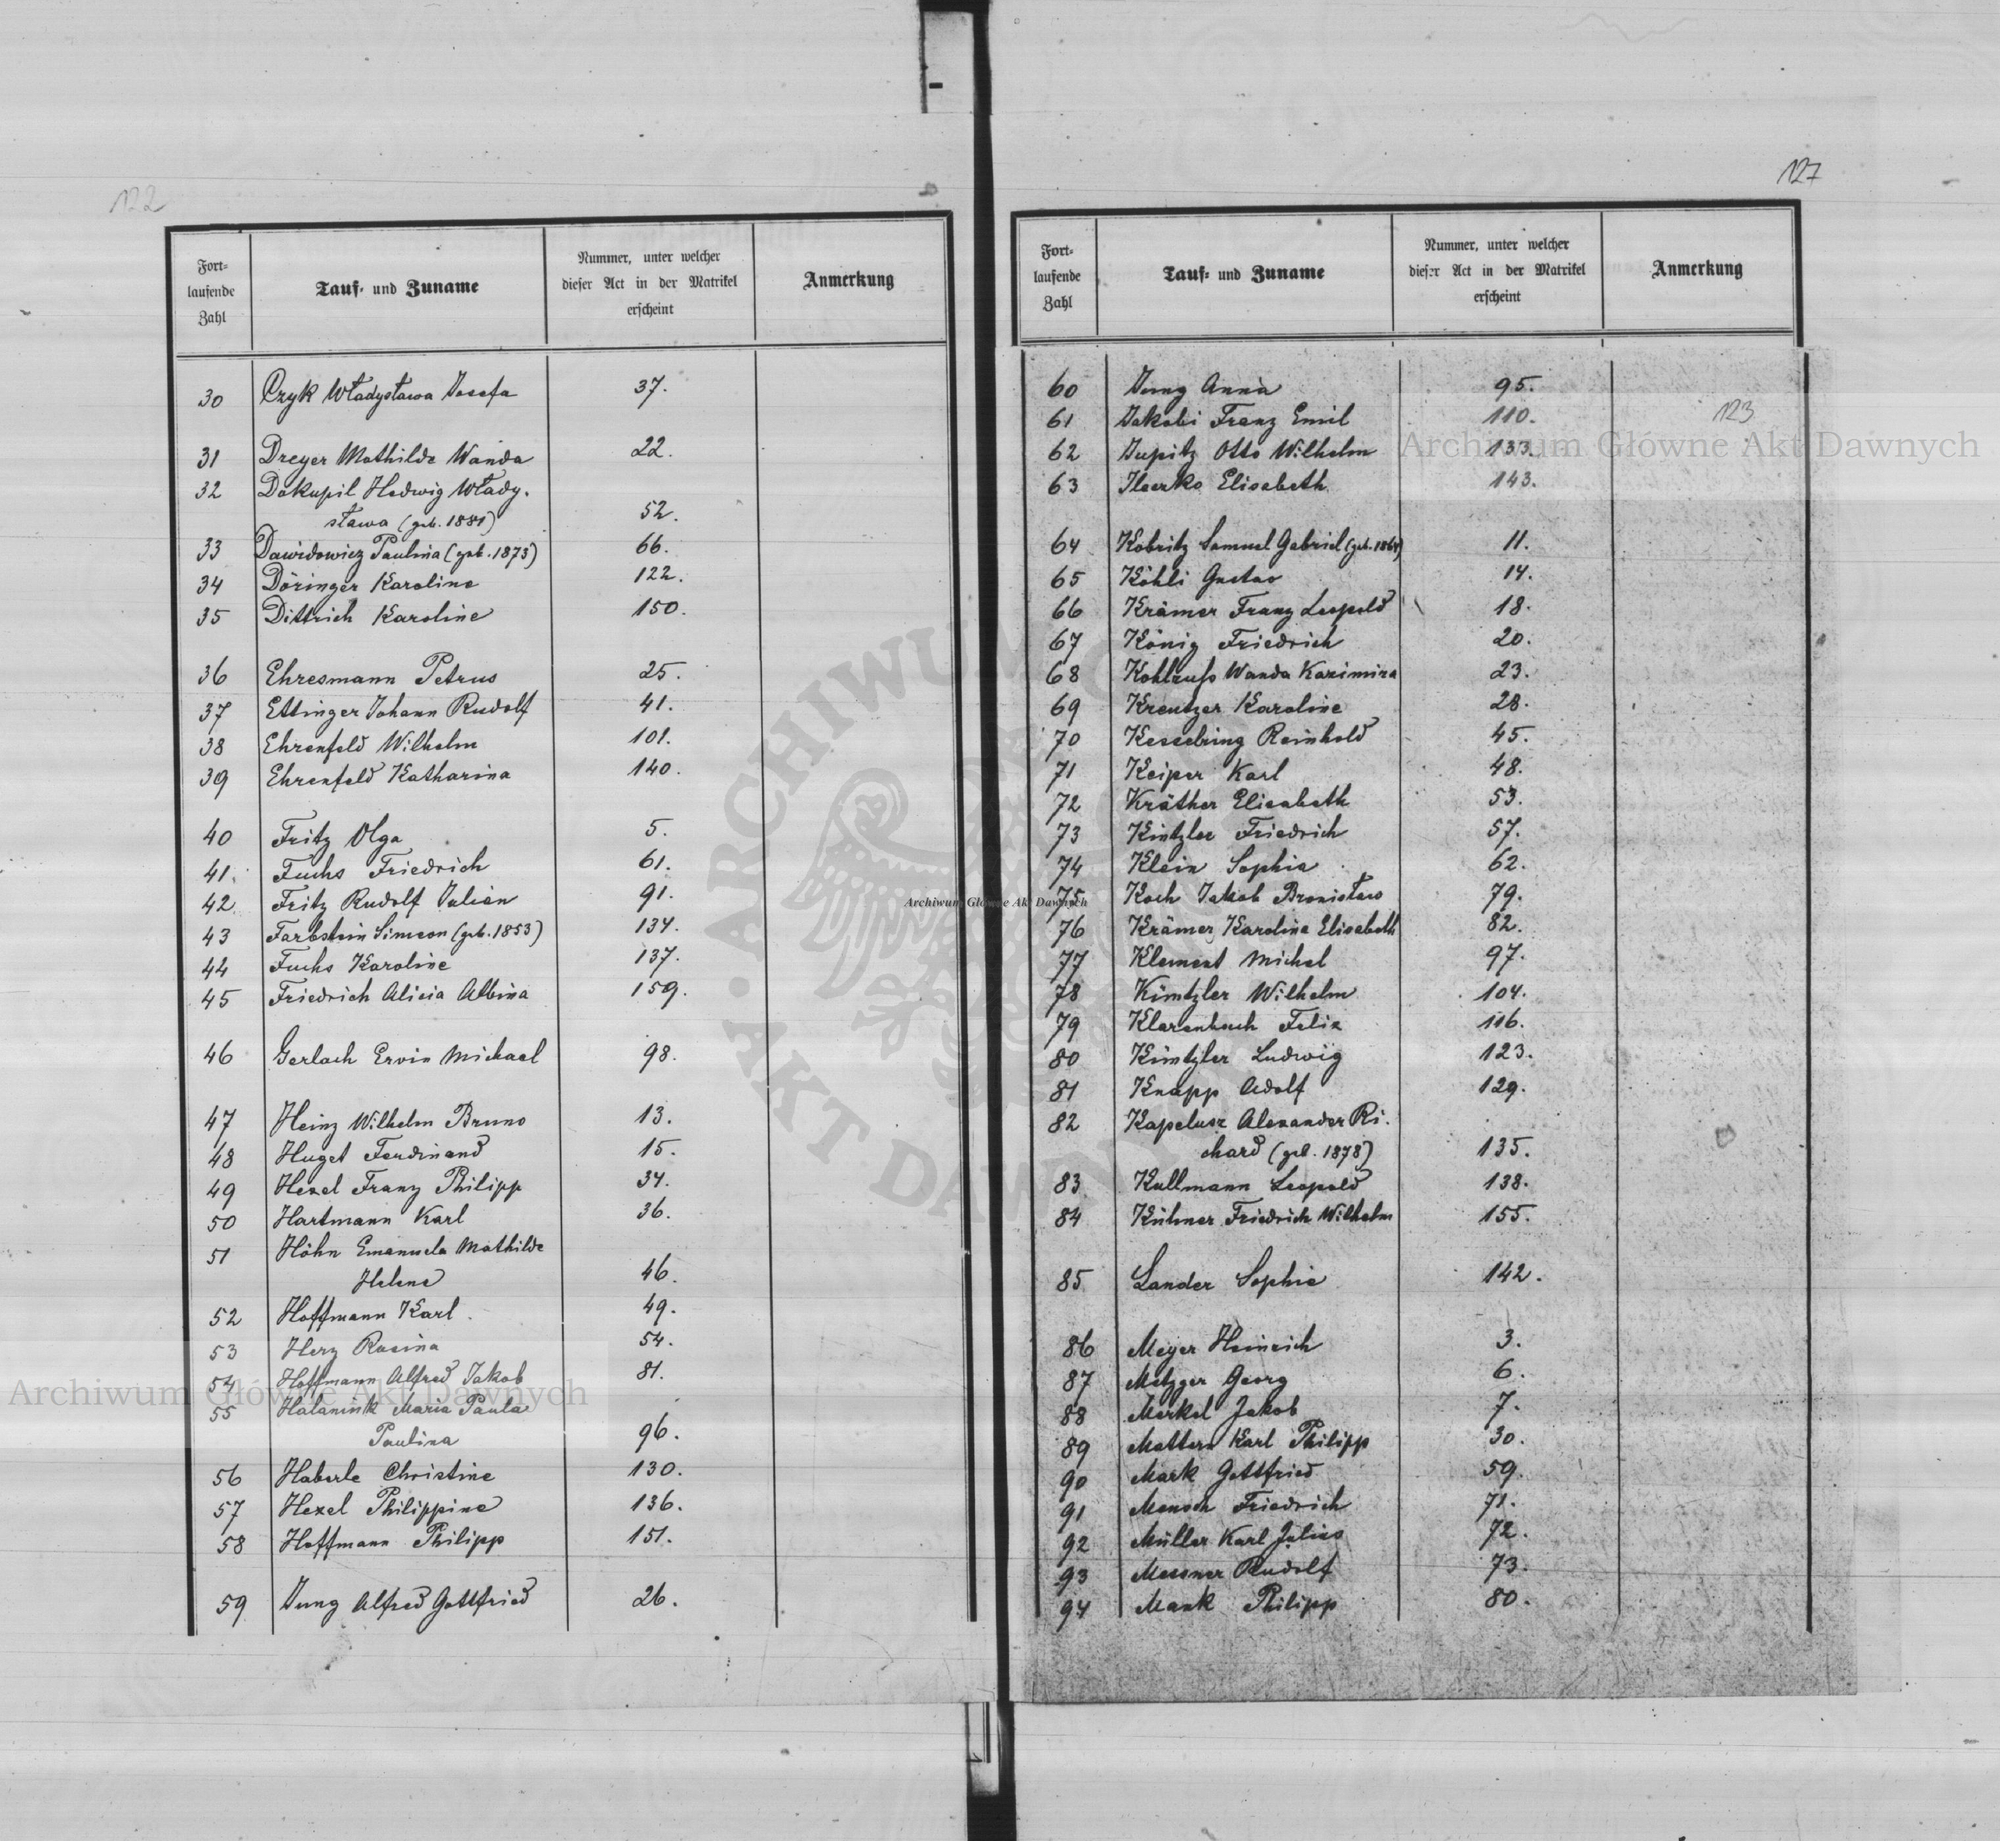 122
Fort-
laufende
Zahl
Tauf- und Zuname
Nummer, unter welcher
dieser Act in der Matrikel
erscheint
Anmerkung
30 Czyk Władysława Josefa 37.
31 Dreyer Mathilde Wanda 22.
32 Dokupil Hedwig Włady-
sława (geb. 1881) 52.
33 Dawidowicz Paulina (geb. 1873) 66.
34 Döringer Karoline 122.
35 Dittrich Karoline 150.
36 Ehresmann Petrus 25.
37 Ettinger Johann Rudolf 41.
38 Ehrenfeld Wilhelm 101.
39 Ehrenfeld Katharina 140.
40 Fritz Olga 5.
41 Fuchs Friedrich 61.
42 Fritz Rudolf Julian 91.
43 Farbstein Simeon (geb. 1853) 134.
44 Fuchs Karoline 137.
45 Friedrich Alicia Albina 159.
46 Gerlach Ervin Michael 98.
47 Heinz Wilhelm Bruno 13.
48 Huget Ferdinand 15.
49 Hexel Franz Philipp 34.
50 Hartmann Karl 36.
51 Höhn Emanuela Mathilde
Helene 46.
52 Hoffmann Karl 49.
53 Herz Rosina 54.
54 Hoffmann Alfred Jakob 81.
55 Halanink Maria Paula
Paulina 96.
56 Haberle Christine 130.
57 Hexel Philippine 136.
58 Hoffmann Philipp 151.
59 Jung Alfred Gottfried 26.
127
Fort-
laufende
Zahl
Tauf- und Zuname
Nummer, unter welcher
dieser Act in der Matrikel
erscheint
Anmerkung
60 Jung Anna 95.
61 Jakobi Franz Emil 110.
123
62 Jupitz Otto Wilhelm 133.
63 Elisabeth 143.
64 Kobritz Samuel Gabriel (geb. 1864) 11.
65 Köhli Gustav 14.
66 Krämer Franz Leopold 18.
67 König Friedrich 20.
68 Kohlruſs Wanda Kazimira 23.
69 Kreutzer Karoline 28.
70 Kesselring Reinhold 45.
71 Keiper Karl 48.
72 Kräther Elisabeth 53.
73 Kintzler Friedrich 57.
74 Klein Sophie 62.
75 Koch Jakob Bronisław 79.
76 Krämer Karoline Elisabeth 82.
77 Klement Michel 97.
78 Kimtzler Wilhelm 104.
79 Klarenbach Felix 116.
80 Kimtzler Ludwig 123.
81 Knapp Adolf 129.
82 Kapelusz Alexander Ri-
chard (geb. 1878) 135.
83 Kullmann Leopold 138.
84 Kühner Friedrich Wilhelm 155.
85 Lander Sophie 142.
86 Meyer Heinrich 3.
87 Metzger Georg 6.
88 Merkel Jakob 7.
89 Mattern Karl Philipp 30.
90 Mark Gottfried 59.
91 Mensch Friedrich 71.
92 Müller Karl Julius 72.
93 Messner Rudolf 73.
94 Mauk Philipp 80.
Archiwum Główne Akt Dawnych
Archiwum Główne Akt Dawnych
Archiwum Główne Akt Dawnych